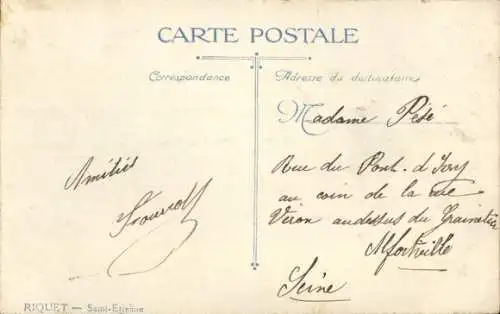 CARTE POSTALE
Correspondance
Adresse du destinataire
Amitiés
Madame Pésé
Rue du Pont-d'Ivry
au coin de la rue
Véron au dessus du Grainetier
Alfortville
Seine
RIQUET — Saint-Etienne